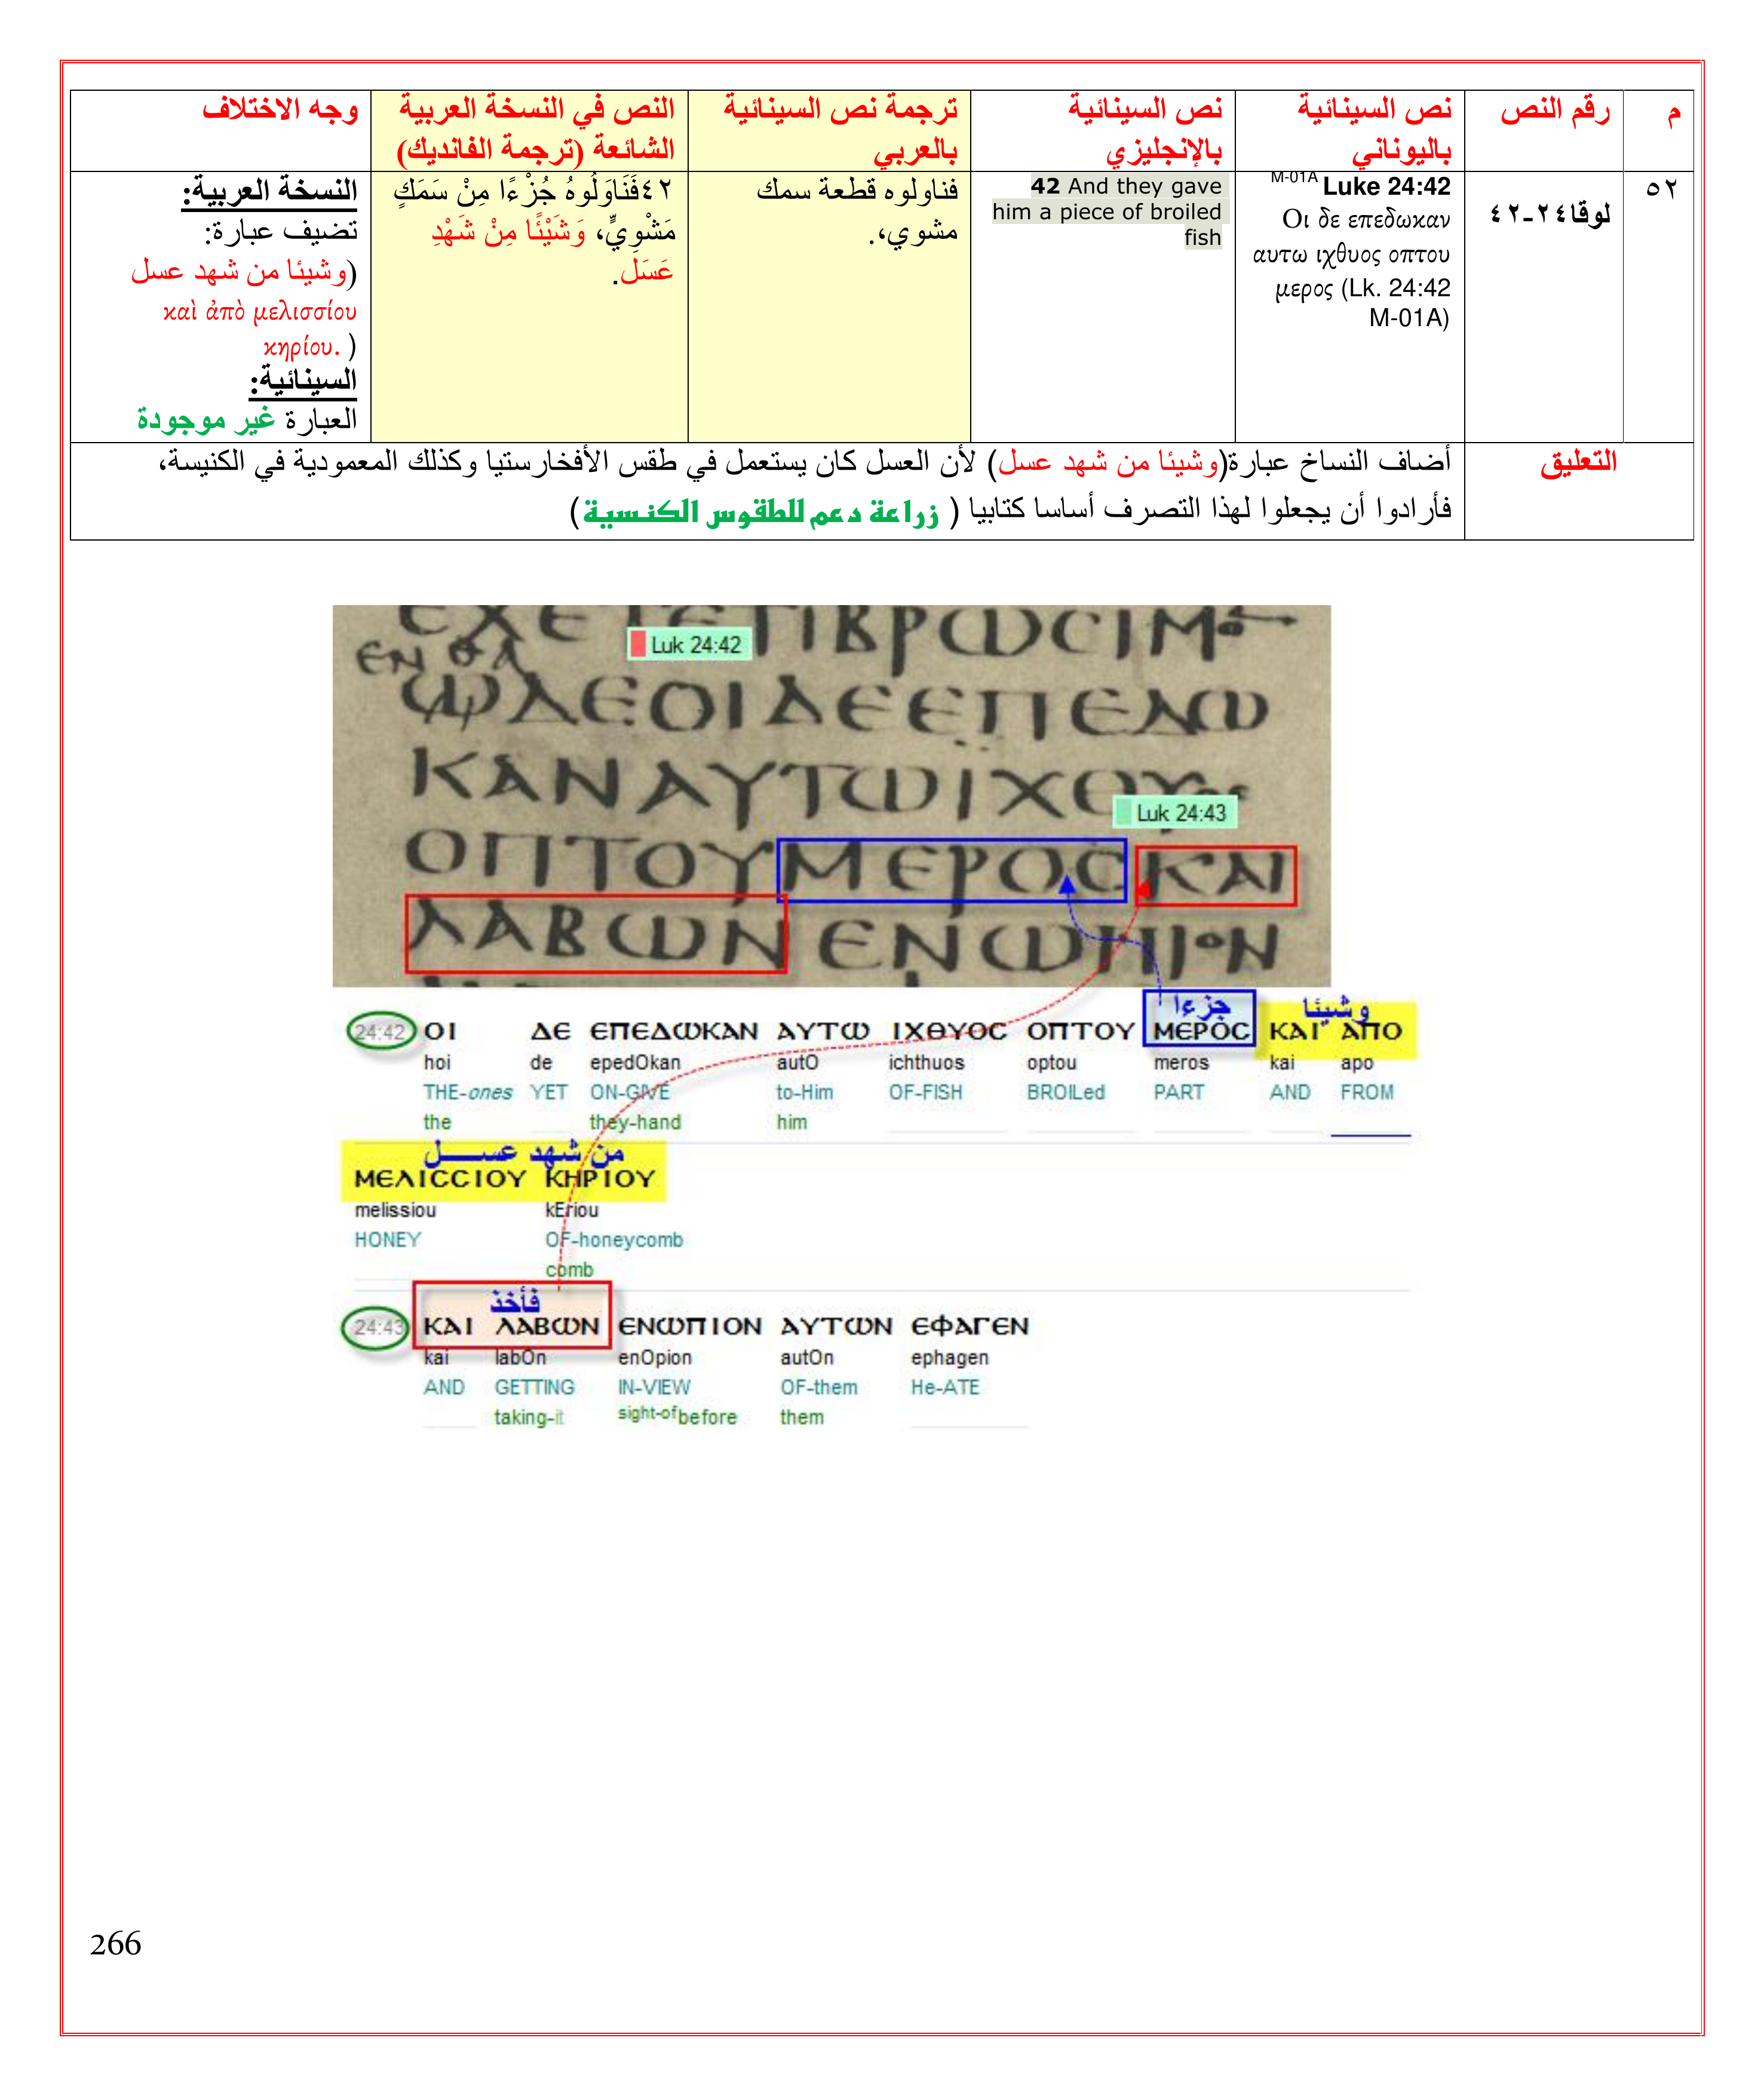 م
رقم النص
نص السينائية
باليوناني
نص السينائية
بالإنجليزي
ترجمة نص السينائية
بالعربي
النص في النسخة العربية
الشائعة (ترجمة الفانديك)
وجه الاختلاف
٥٢
لوقا٢٤-٤٢
M-01A Luke 24:42
Οι δε επεδωκαν
αυτω ιχθυος οπτου
μερος (Lk. 24:42
M-01A)
42 And they gave
him a piece of broiled
fish
فناولوه قطعة سمك
مشوي،.
٤٢فَنَاوَلُوهُ جُزْءًا مِنْ سَمَكٍ
مَشْوِيٍّ، وَشَيْئًا مِنْ شَهْدِ
عَسَل.
النسخة العربية:
تضيف عبارة:
(وشيئا من شهد عسل
καὶ ἀπὸ μελισσίου
κηρίου. )
السينائية:
العبارة غير موجودة
التعليق
أضاف النساخ عبارة(وشيئا من شهد عسل) لأن العسل كان يستعمل في طقس الأفخارستيا وكذلك المعمودية في الكنيسة،
فأرادوا أن يجعلوا لهذا التصرف أساسا كتابيا ( زراعة دعم للطقوس الكنسية)
ΕΧΕΤΕΤΙΒΡωϹΙΜ
ΕΝΘΑ
Luk 24:42
ωΔΕΟΙΔΕΕΠΕΔω
ΚΑΝΑΥΤωΙΧΘΥοϲ
Luk 24:43
ΟΠΤΟΥΜΕΡΟϹΚΑΙ
ΛΑΒωΝΕΝωΠΙοΝ
جزءا وشيئا
24:42 ΟΙ ΔΕ ΕΠΕΔωΚΑΝ ΑΥΤω ΙΧΘΥΟϹ ΟΠΤΟΥ ΜΕΡΟϹ ΚΑΙ ΑΠΟ
hoi de epedOkan autO ichthuos optou meros kai apo
THE-ones YET ON-GIVE to-Him OF-FISH BROILed PART AND FROM
the they-hand him
من شهد عســـل
ΜΕΛΙϹϹΙΟΥ ΚΗΡΙΟΥ
melissiou kEriou
HONEY OF-honeycomb
comb
فأخذ
24:43 ΚΑΙ ΛΑΒωΝ ΕΝωΠΙΟΝ ΑΥΤωΝ ΕΦΑΓΕΝ
kai labOn enOpion autOn ephagen
AND GETTING IN-VIEW OF-them He-ATE
taking-it sight-of before them
266